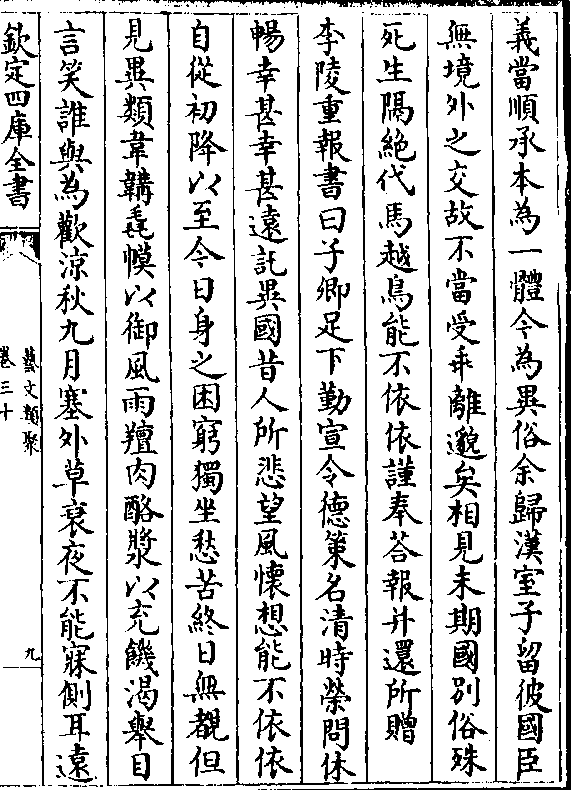 義當順承本為一體今為異俗余歸漢室子留彼國臣
無境外之交故不當受乖離邈矣相見未期國别俗殊
死生隔絶代馬越鳥能不依依謹奉答報并還所贈
李陵重報書曰子卿足下勤宣令德策名清時榮問休
暢幸甚幸甚遠託異國昔人所悲望風懷想能不依依
自從初降以至今日身之困窮獨坐愁苦終日無覩但
見異類韋韝毳幙以御風雨羶肉酪漿以充饑渴舉目
言笑誰與為歡涼秋九月塞外草衰夜不能寐側耳遠
欽定四庫全書
藝文類聚
卷三十
九